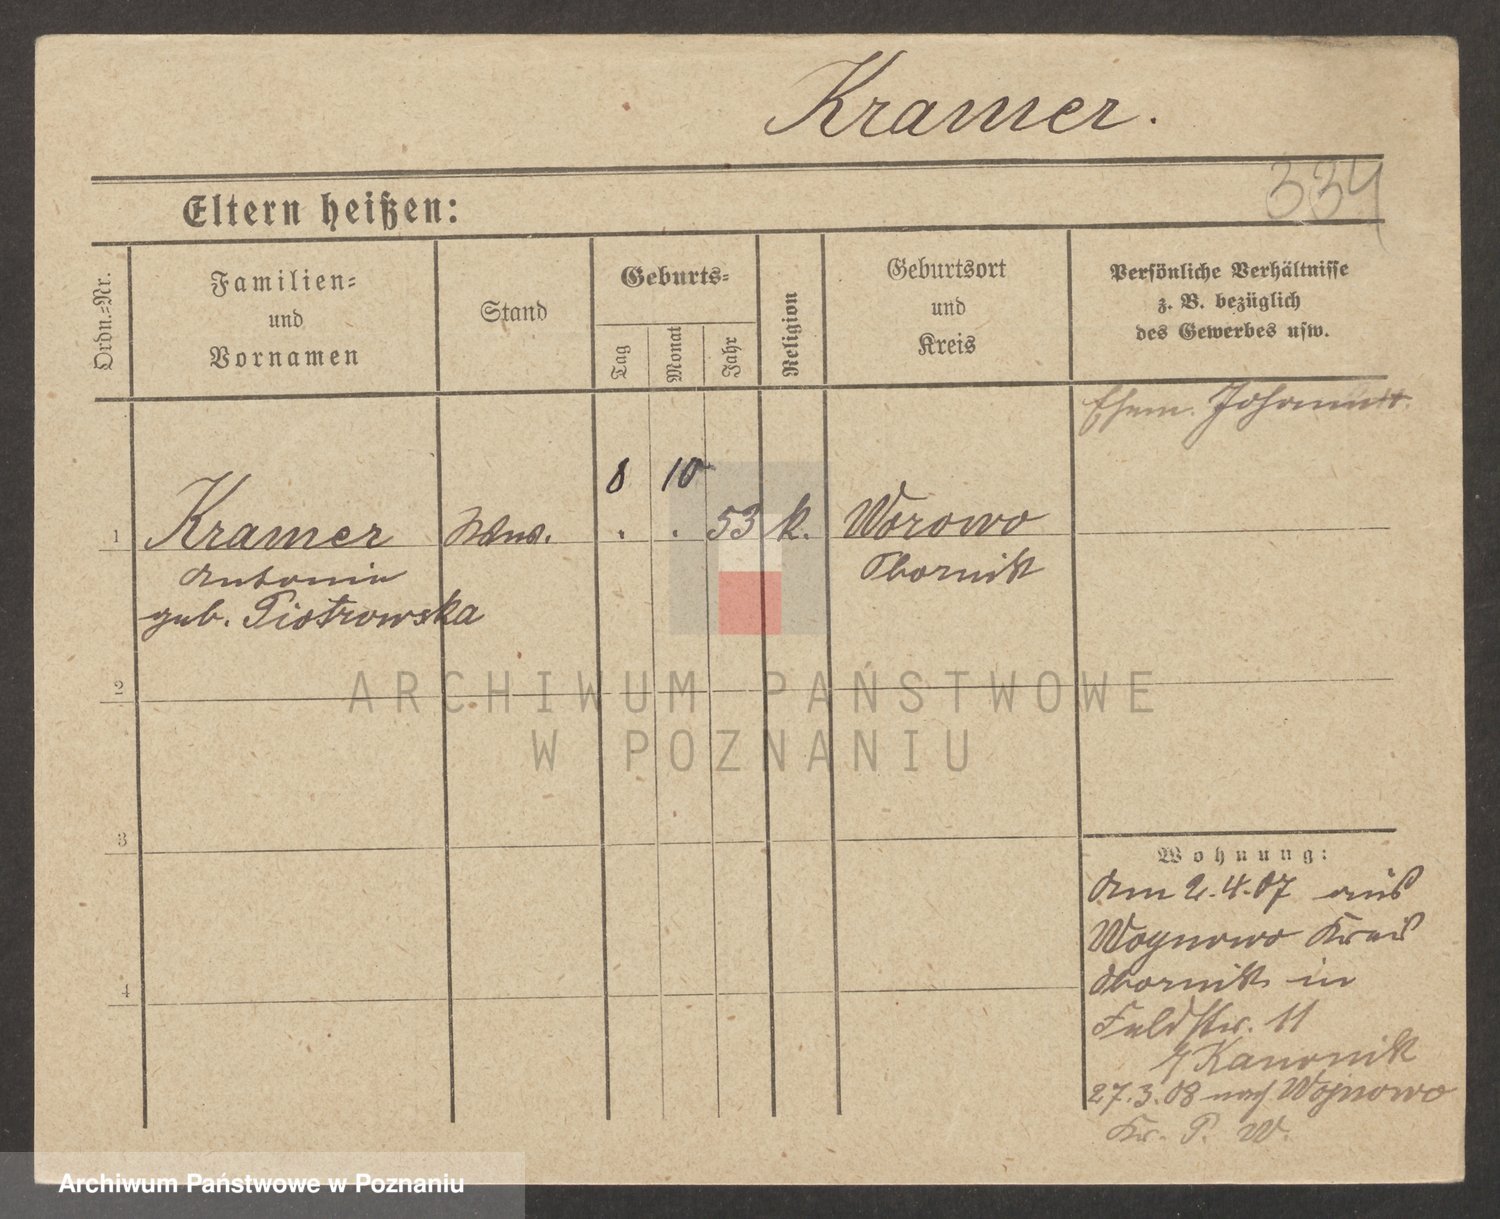 Kramer.
334
Eltern heißen:
Ordn.-Nr.
Familien-
und
Vornamen
Stand
Geburts-
Tag
Monat
Jahr
Religion
Geburtsort
und
Kreis
Persönliche Verhältnisse
z. B. bezüglich
des Gewerbes usw.
Ehem. Johann
8 10
1 Kramer Wwe. . . 53 k. Worowo
Antonie Obornik
geb. Piotrowska
2
ARCHIWUM PAŃSTWOWE
W POZNANIU
3
Wohnung:
Am 2.4.07 aus
Wognowo Kreis
4
Obornik in
Feldstr. 11
b/ Kanonik
27.3.08 nach Wojnowo
Kr. P. W.
Archiwum Państwowe w Poznaniu